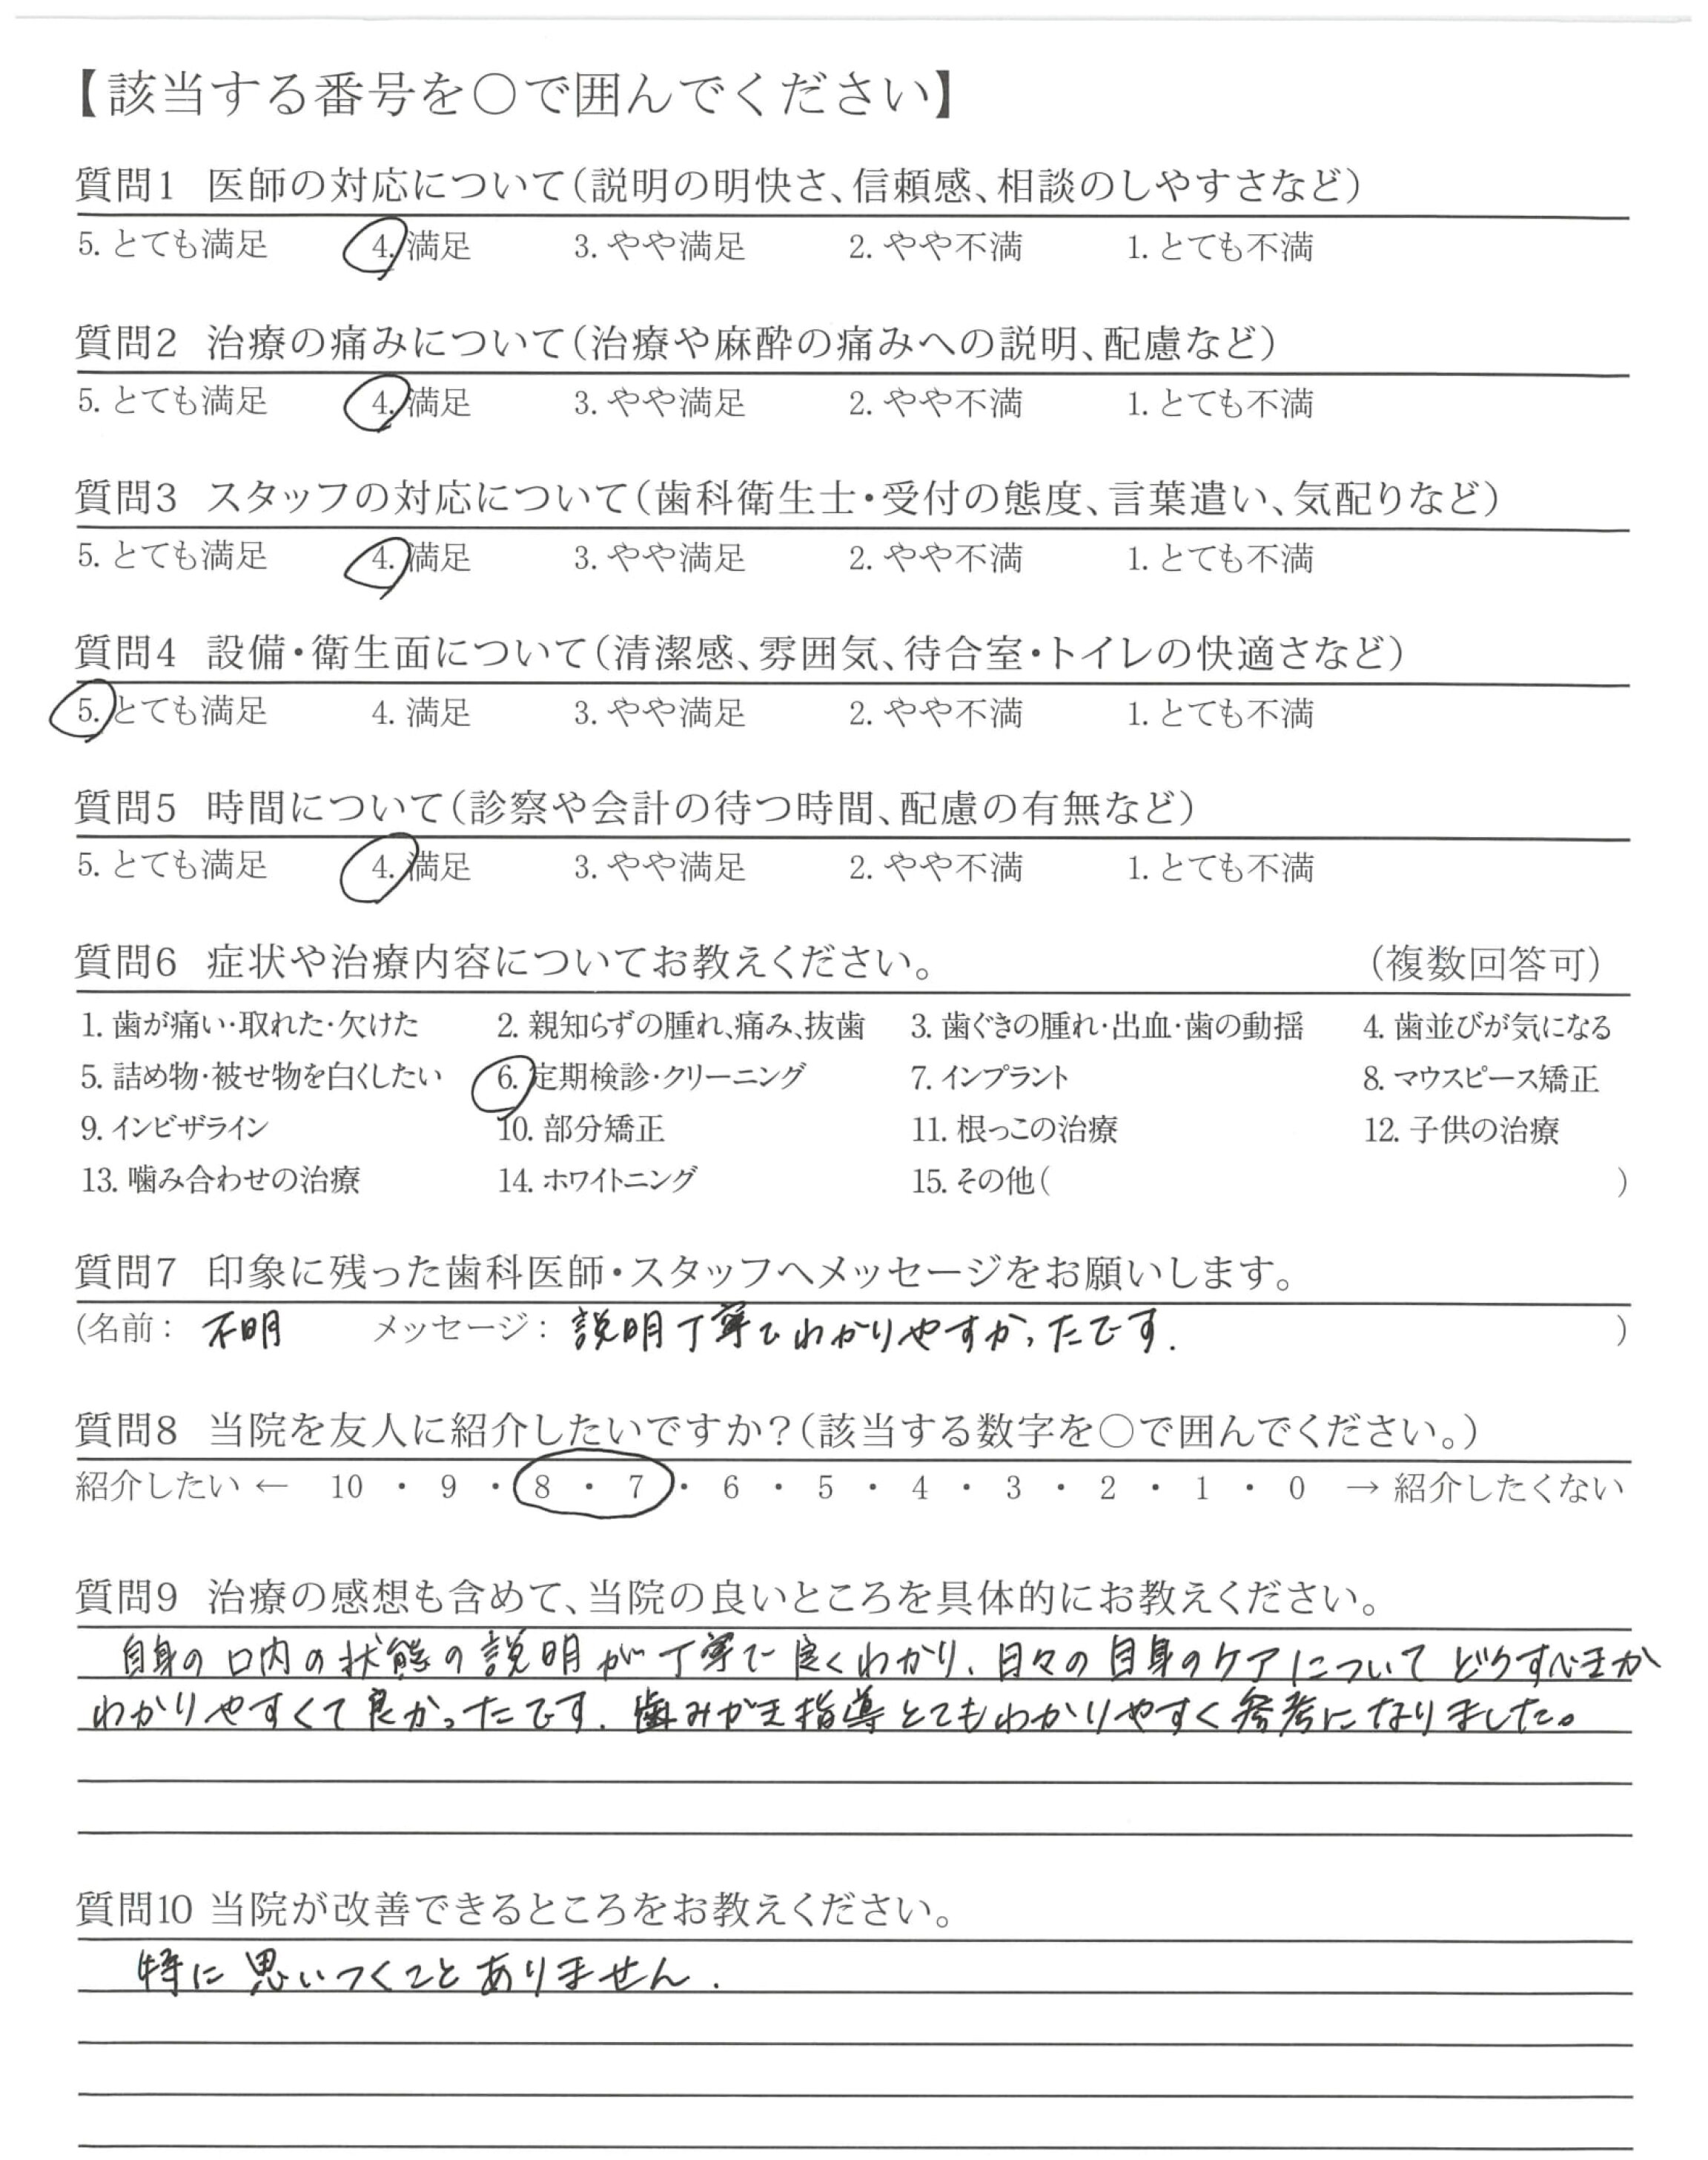 【該当する番号を○で囲んでください】
質問1 医師の対応について(説明の明快さ、信頼感、相談のしやすさなど)
5. とても満足 4. 満足 3. やや満足 2. やや不満 1. とても不満
質問2 治療の痛みについて(治療や麻酔の痛みへの説明、配慮など)
5. とても満足 4. 満足 3. やや満足 2. やや不満 1. とても不満
質問3 スタッフの対応について(歯科衛生士・受付の態度、言葉遣い、気配りなど)
5. とても満足 4. 満足 3. やや満足 2. やや不満 1. とても不満
質問4 設備・衛生面について(清潔感、雰囲気、待合室・トイレの快適さなど)
5. とても満足 4. 満足 3. やや満足 2. やや不満 1. とても不満
質問5 時間について(診察や会計の待つ時間、配慮の有無など)
5. とても満足 4. 満足 3. やや満足 2. やや不満 1. とても不満
質問6 症状や治療内容についてお教えください。 (複数回答可)
1. 歯が痛い・取れた・欠けた 2. 親知らずの腫れ、痛み、抜歯 3. 歯ぐきの腫れ・出血・歯の動揺 4. 歯並びが気になる
5. 詰め物・被せ物を白くしたい 6. 定期検診・クリーニング 7. インプラント 8. マウスピース矯正
9. インビザライン 10. 部分矯正 11. 根っこの治療 12. 子供の治療
13. 噛み合わせの治療 14. ホワイトニング 15. その他( )
質問7 印象に残った歯科医師・スタッフへメッセージをお願いします。
(名前: 不明 メッセージ: 説明丁寧でわかりやすかったです. )
質問8 当院を友人に紹介したいですか?(該当する数字を○で囲んでください。)
紹介したい ← 10 ・ 9 ・ 8 ・ 7 ・ 6 ・ 5 ・ 4 ・ 3 ・ 2 ・ 1 ・ 0 → 紹介したくない
質問9 治療の感想も含めて、当院の良いところを具体的にお教えください。
自身の口内の状態の説明が丁寧で良くわかり、日々の自身のケアについてどうすべきか
わかりやすくて良かったです. 歯みがき指導とてもわかりやすく参考になりました。
質問10 当院が改善できるところをお教えください。
特に思いつくことありません.